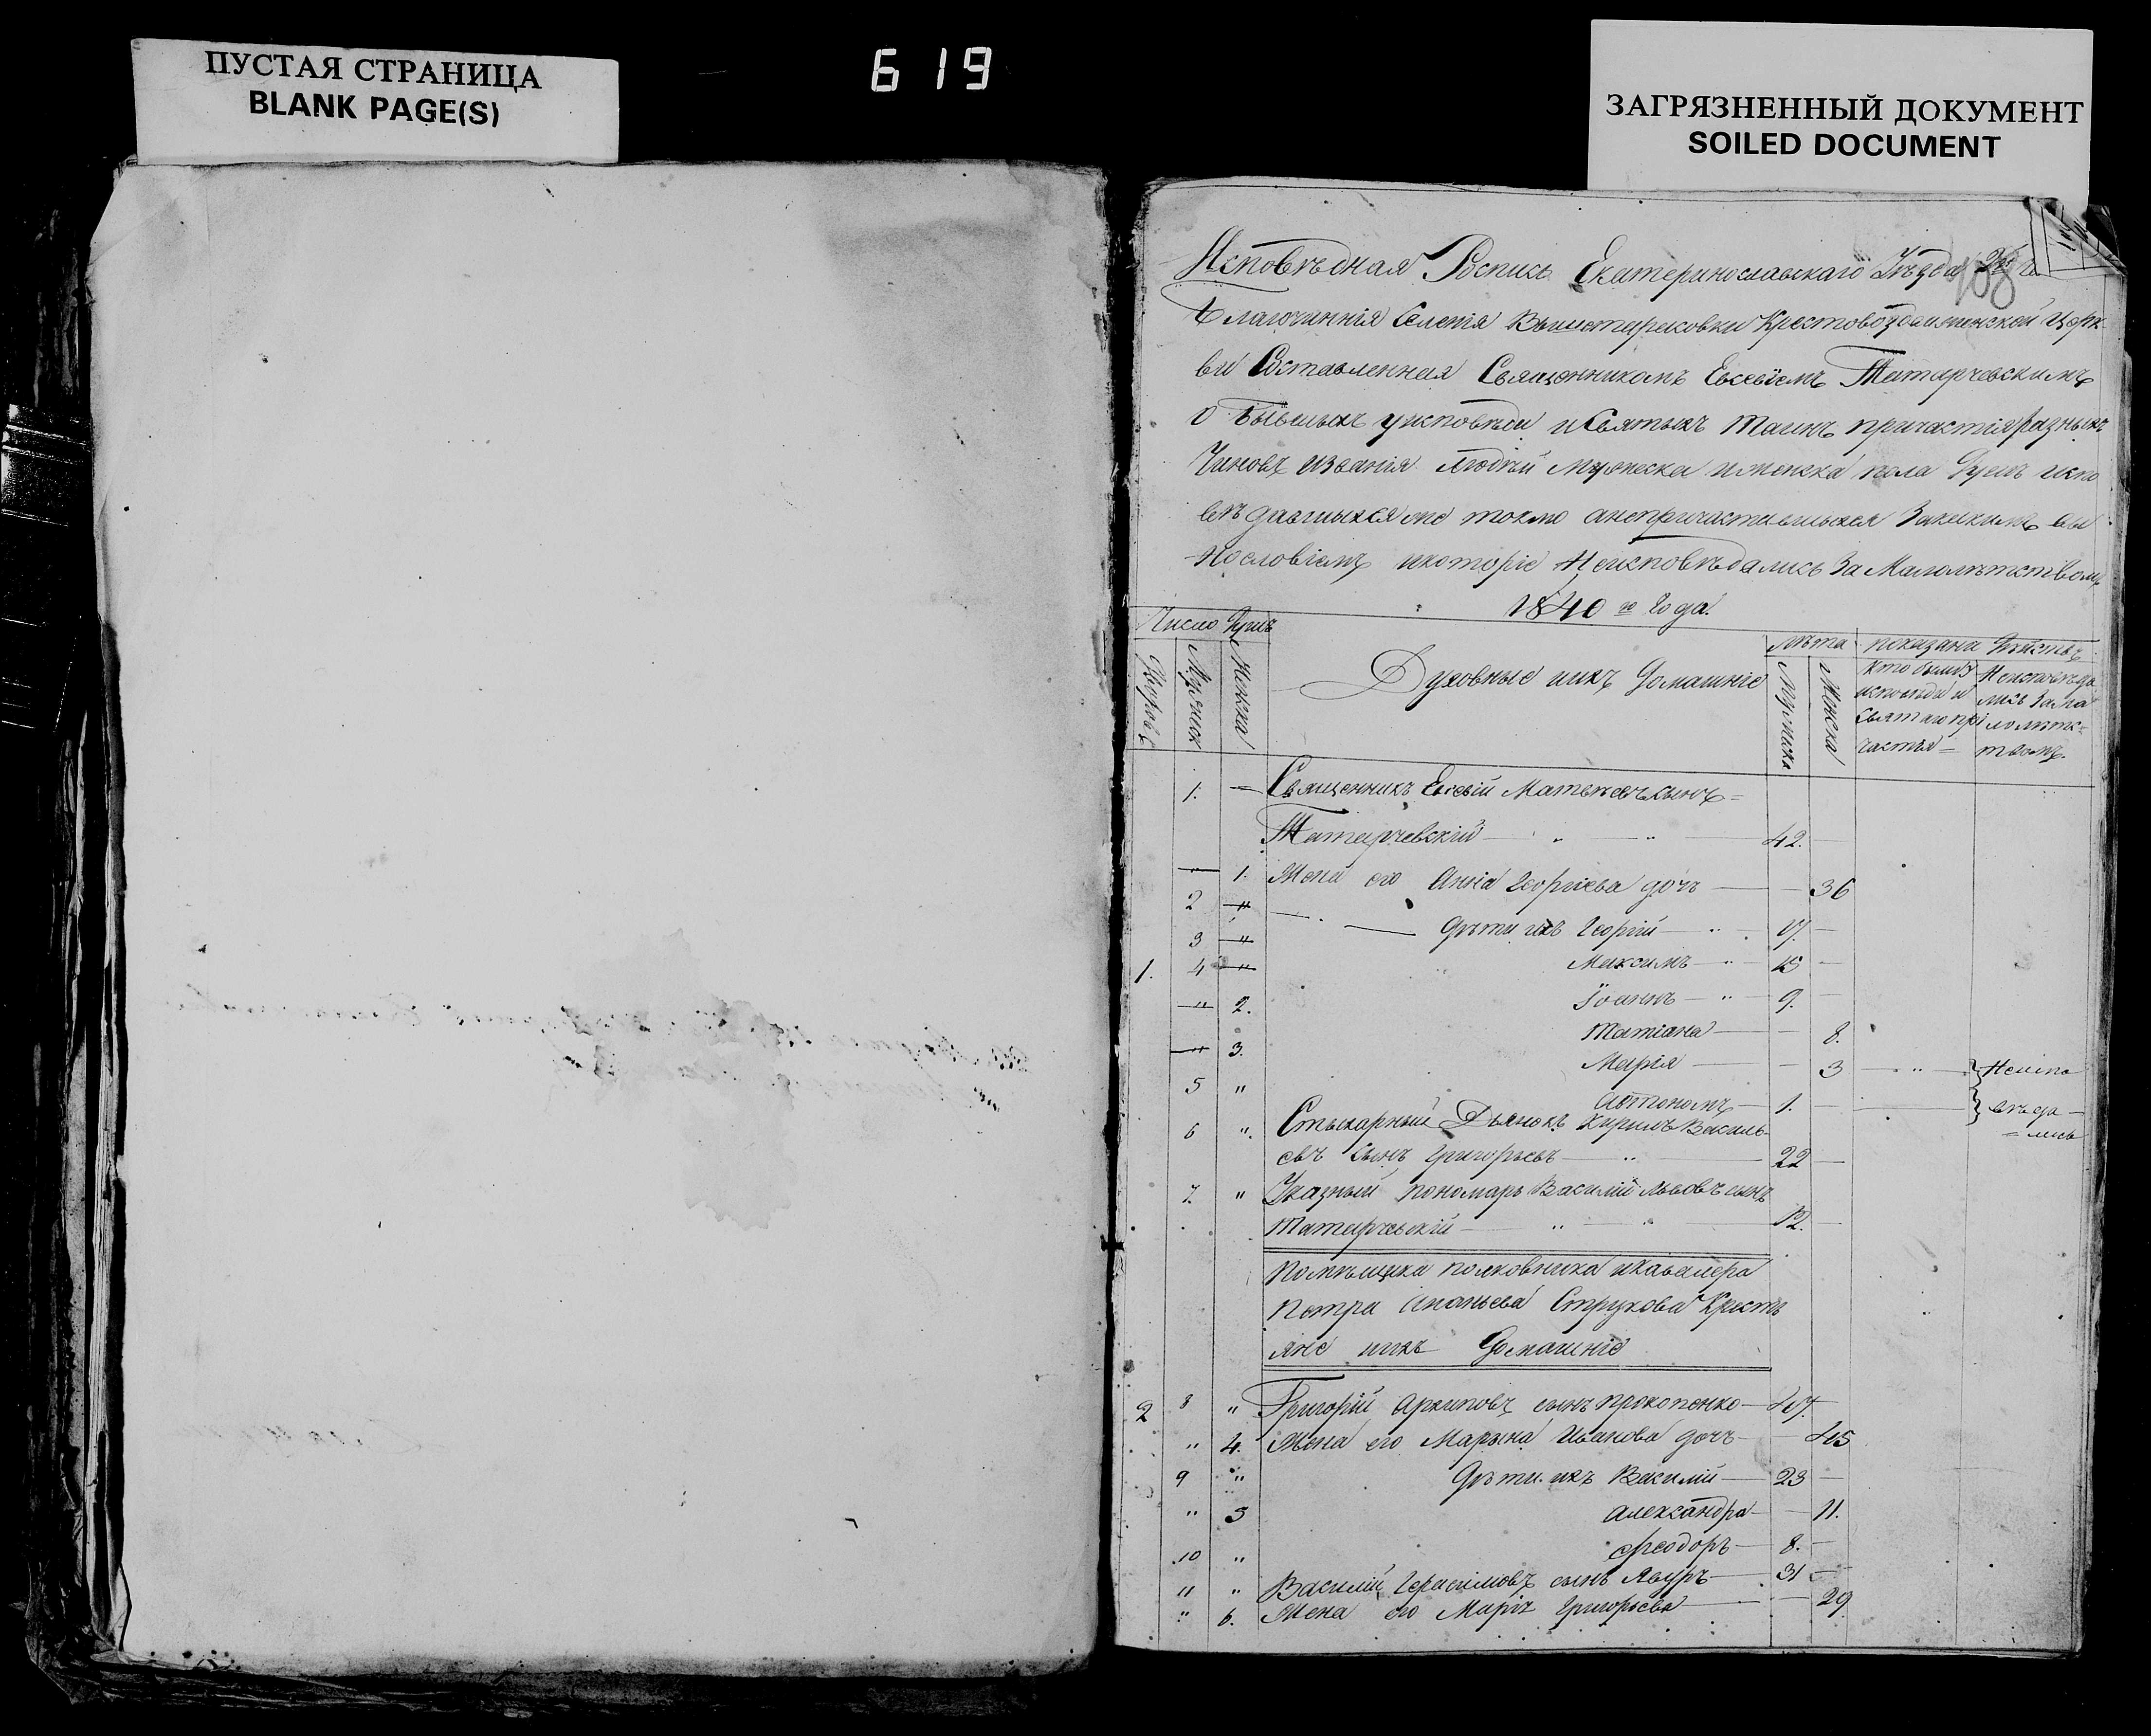 ПУСТАЯ СТРАНИЦА
BLANK PAGE(S)
619
ЗАГРЯЗНЕННЫЙ ДОКУМЕНТ
SOILED DOCUMENT
Исповѣдная Роспись Екатеринославскаго Уѣзда
168
Благочиннія Селенія Вышетарасовки Крестовоздвиженской Церк
ви Составленная Священникомъ Евсевіемъ Татарчевскимъ
о бывшихъ уисповѣди иСвятыхъ Таинъ причастія разныхъ
Чиновъ изванія людѣй мужеска иженска пола Душъ испо
вѣдавшихся же токмо анепричастившихся Закакимъ ви
нословіемъ икоторіе Неисповѣдались За Малолѣтствомъ
1840 го Года.
Число Душъ
Дворовъ
Мужеск
Женска
Духовные иихъ Домашніе
лѣта
Мужеска
Женска
показаніе
Кто былъ у исповѣди и Святаго причастія
Неисповѣдались За малолѣтствомъ.
1. Священникъ Евсевій Матвѣевъ сынъ
Татарчевскій 42.
1. Жена его Анна Георгіева дочъ 36
2 Дѣти ихъ Георгій 17.
3 Максимъ 15
1. 4 Іоаннъ 9.
2. Татіана 8.
3. Марія 3 Неиспо
5 " Автономъ 1. вѣда
лись
6 " Стихарный Дьячокъ Кирилъ Василь
евъ Сынъ Григорьевъ 22
7. " Указный пономарь Василій Львовъ сынъ
Татарчевскій 12.
Помѣщика полковника икавалера
Петра Ананьева Струкова Кресть
яне иихъ Домашніе
2 8 " Григорій Архиповъ сынъ Прокопенко 47.
" 4. Жена его Марьяна Иванова дочъ 45
9 " Дѣти ихъ Василій 23
" 5 Александра 11.
10 " Ѳеодоръ 8.
11 " Василій Герасимовъ сынъ Явуръ 31
" 6. Жена его Марія Григорьева 29